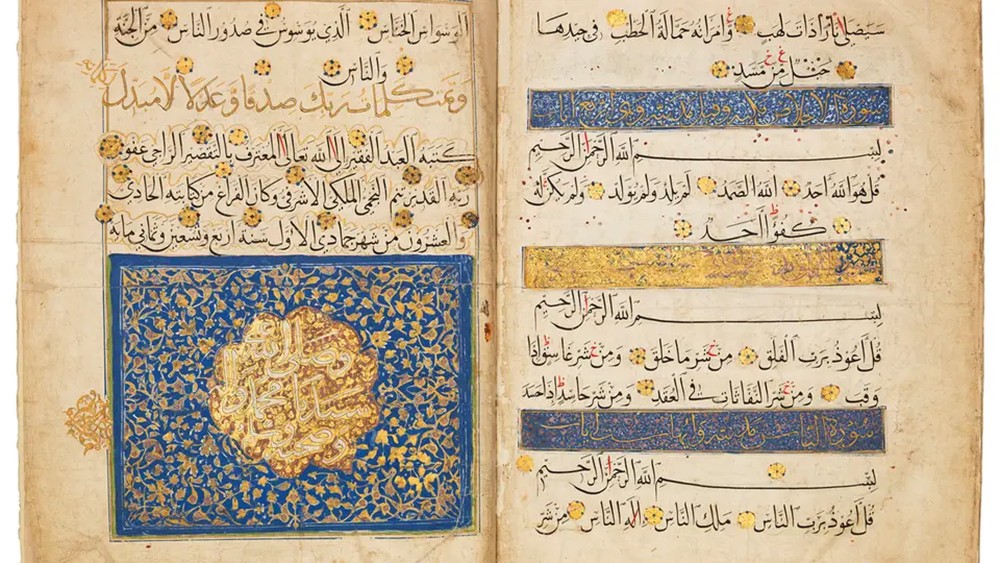 سَيَصْلَى نَارًا ذَاتَ لَهَبٍ وَامْرَأَتُهُ حَمَّالَةَ الْحَطَبِ فِي جِيدِهَا
حَبْلٌ مِنْ مَسَدٍ
سورة الاخلاص
بِسْمِ اللَّهِ الرَّحْمَنِ الرَّحِيمِ
قُلْ هُوَ اللَّهُ أَحَدٌ اللَّهُ الصَّمَدُ لَمْ يَلِدْ وَلَمْ يُولَدْ وَلَمْ يَكُنْ لَهُ
كُفُوًا أَحَدٌ
بِسْمِ اللَّهِ الرَّحْمَنِ الرَّحِيمِ
قُلْ أَعُوذُ بِرَبِّ الْفَلَقِ مِنْ شَرِّ مَا خَلَقَ وَمِنْ شَرِّ غَاسِقٍ إِذَا
وَقَبَ وَمِنْ شَرِّ النَّفَّاثَاتِ فِي الْعُقَدِ وَمِنْ شَرِّ حَاسِدٍ إِذَا حَسَدَ
سورة الناس
بِسْمِ اللَّهِ الرَّحْمَنِ الرَّحِيمِ
قُلْ أَعُوذُ بِرَبِّ النَّاسِ مَلِكِ النَّاسِ إِلَهِ النَّاسِ مِنْ شَرِّ
الْوَسْوَاسِ الْخَنَّاسِ الَّذِي يُوَسْوِسُ فِي صُدُورِ النَّاسِ مِنَ الْجِنَّةِ
وَالنَّاسِ
وتمت كلمات ربك صدقا وعدلا لا مبدل
لكلماته
كتبه العبد الفقير إلى الله تعالى المعترف بالتقصير الراجي عفو
ربه القدير النجمي الملكي الأشرفي وكان الفراغ من كتابته الحادي
والعشرون من شهر جمادي الأول سنة أربع وتسعين وثماني مايه
وصلى الله على
سيدنا محمد